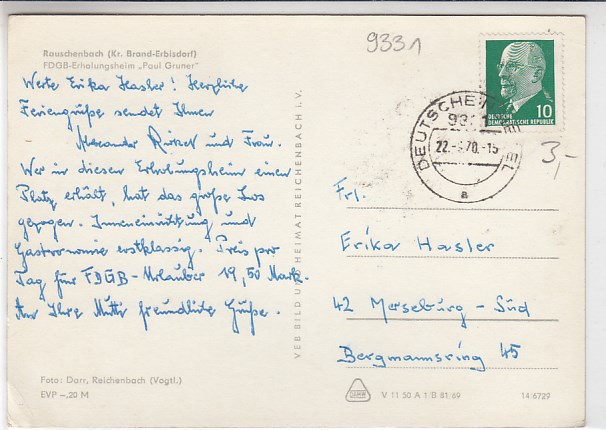 9331
Rauschenbach (Kr. Brand-Erbisdorf)
FDGB-Erholungsheim „Paul Gruner"
Werte Erika Hasler! Herzliche
Feriengrüße sendet Ihnen
Alexander und Frau.
Wer in diesem Erholungsheim einen
Platz erhält, hat das große Los
gezogen. Inneneinrichtung und
Gastronomie erstklassig. Preis pro
Tag für FDGB-Urlauber 19,50 Mark.
An Ihre Mutti freundliche Grüße.
Foto: Darr, Reichenbach (Vogtl.)
EVP –,20 M
VEB BILD UND HEIMAT REICHENBACH i. V.
10
DEUTSCHE
DEMOKRATISCHE REPUBLIK
DEUTSCHE
22.-.70.-15
a
3,-
Frl.
Erika Hasler
42 Merseburg - Süd
Bergmannsring 45
V 11 50 A 1/B 81/69
14 6729